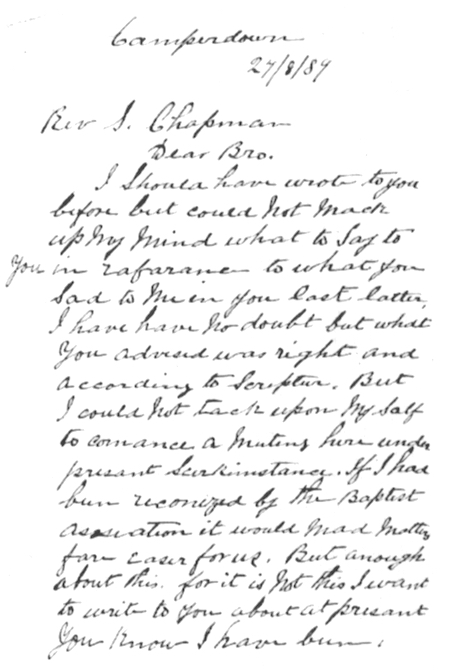 Camperdown
27/8/89
Rev S. Chapman
Dear Bro.
I Should have wrote to you
before but could Not Mack
up My Mind what to Say to
You in rafarance to what you
Sad to Me in you last latter,
I have have No doubt but what
You advised was right and
according to Scriptur. But
I could Not tack upon My Salf
to comance a Muting here under
presant Surkimstance. If I had
bun reconized by the Baptist
asosiation it would Mad Matters
fare easer for us. But anough
about this. for it is Not this I want
to write to you about at presant
You Know I have bun,